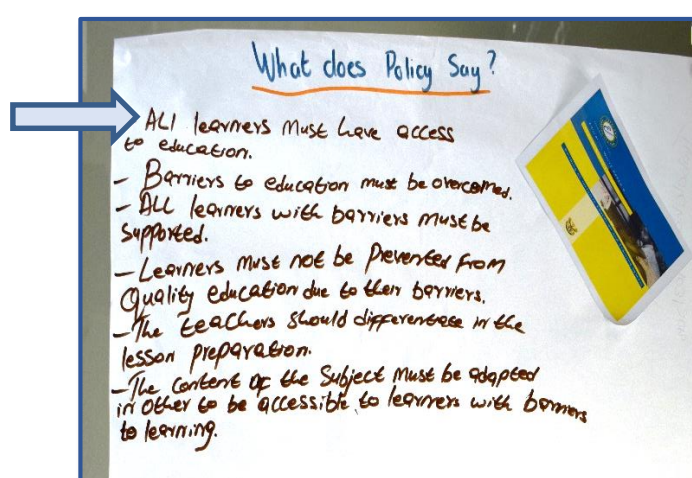 What does Policy Say?
ALl learners must have access
to education.
- Barriers to education must be overcomed.
- ALL learners with barriers must be
supported.
- Learners must not be prevented from
Quality education due to their barriers.
- The teachers should differentiate in the
lesson preparation.
- The content of the Subject must be adapted
in other to be accessible to learners with barriers
to learning.